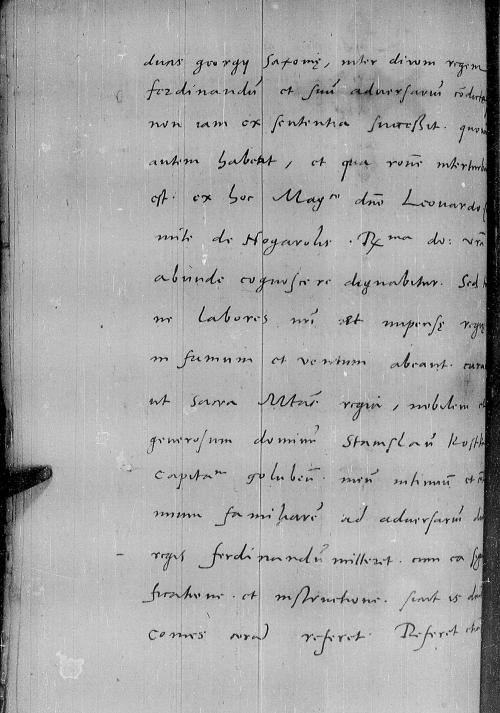 ducis georgij Saxonię, inter divum regem
ferdinandū et suū adversariū cōducta
non tam ex sententia successit. quomo
autem habeat, et qua rōne interturba
est. ex hoc Mag^co dño Leonardo
mite de Nogarolis. Rx^ma do: vrā
abunde cognoscere dignabitur. Sed
ne labores nrī et impensę regię
in fumum et ventum abeant. cura
ut sacra Mtās regia, nobilem
generosum dominū Stanislaū Kostk
Capita^m golubeñ. meū intimū et
mum familiarē ad adversariū
regis ferdinandū mitteret. cum ea sig
ficatione. et instructione. sicut is
comes corā referet. Referet etiā